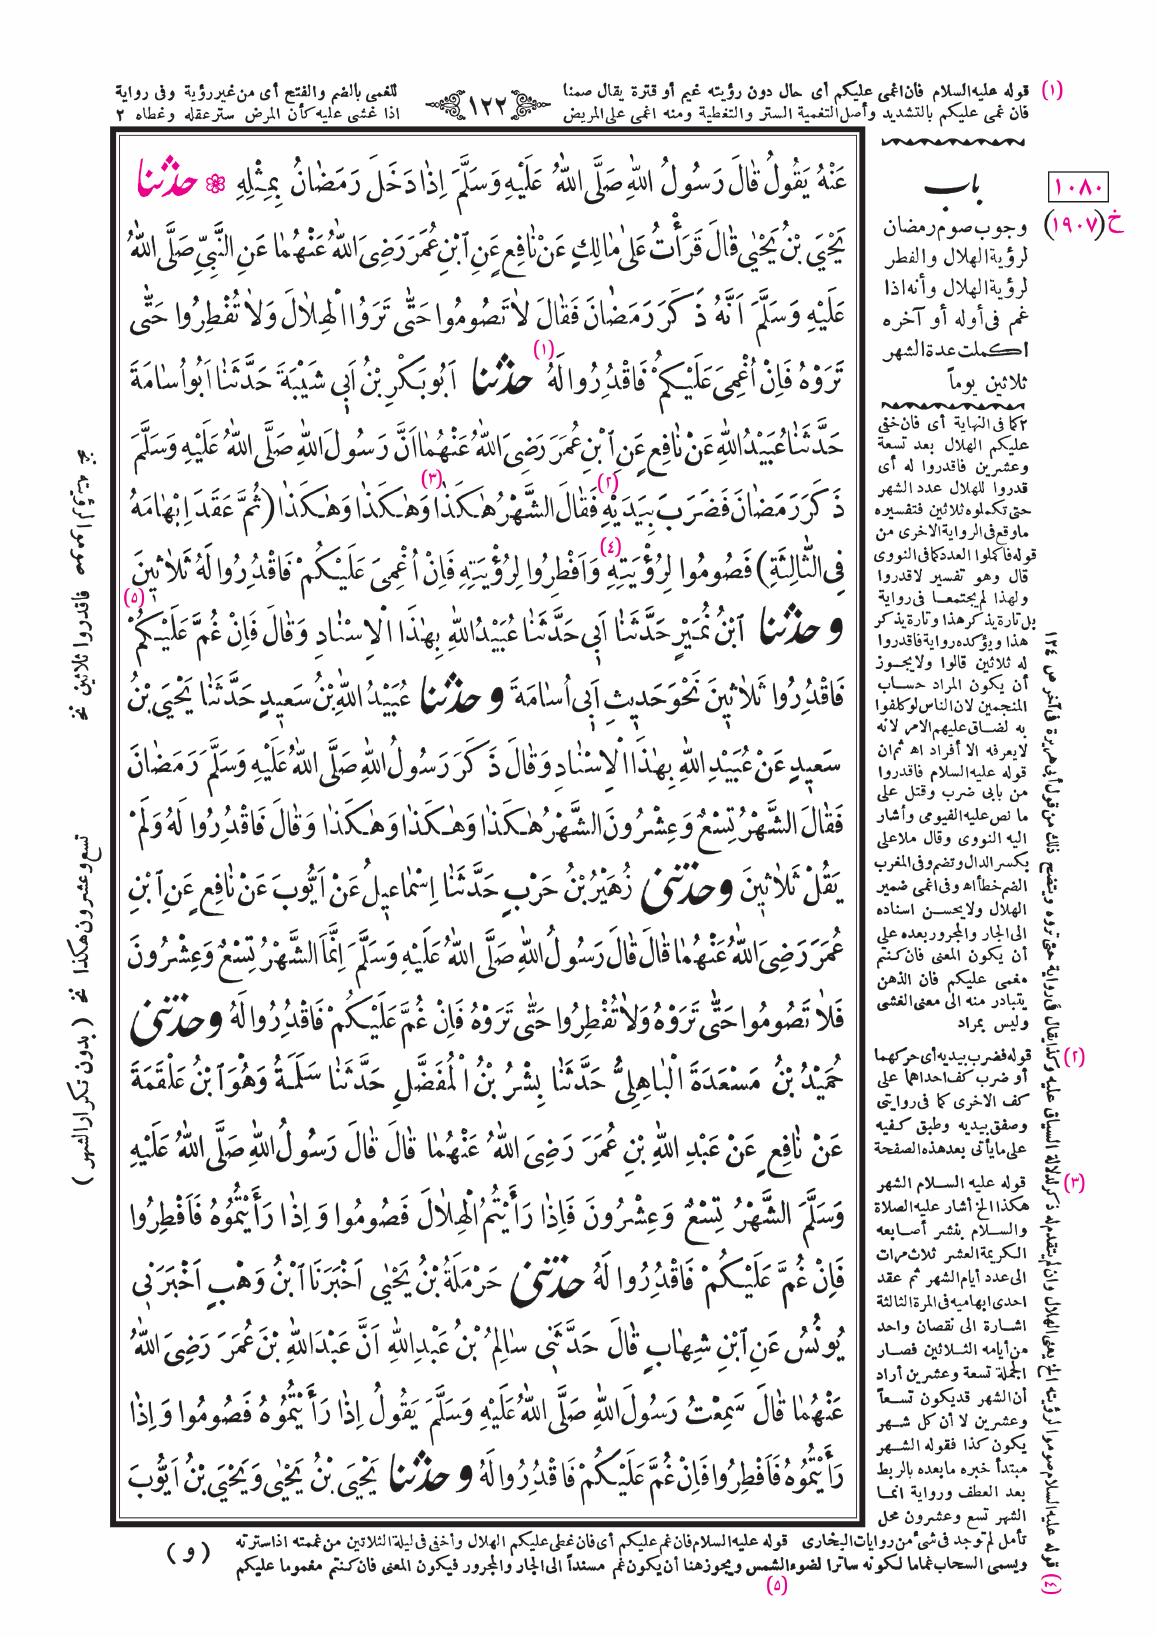 (١) قوله عليه السلام فان اغمى عليكم أى حال دون رؤيته غيم أو قترة يقال صمنا
فان غمى عليكم بالتشديد وأصل التغمية الستر والتغطية ومنه اغمى على المريض
١٢٢
للغمى بالضم والفتح أى من غير رؤية وفى رواية
اذا غشى عليه كأن المرض ستر عقله وغطاه ٢
عَنْهُ يَقُولُ قَالَ رَسُولُ اللهِ صَلَّى اللهُ عَلَيْهِ وَسَلَّمَ اِذَا دَخَلَ رَمَضَانُ بِمِثْلِهِ ❁ حدثنا
يَحْيَى بْنُ يَحْيٰى قَالَ قَرَأْتُ عَلىٰ مَالِكٍ عَنْ نَافِعٍ عَنِ ابْنِ عُمَرَ رَضِىَ اللهُ عَنْهُمَا عَنِ النَّبِىِّ صَلَّى اللهُ
عَلَيْهِ وَسَلَّمَ اَنَّهُ ذَكَرَ رَمَضَانَ فَقَالَ لاَ تَصُومُوا حَتّٰى تَرَوُا الْهِلاَلَ وَلاَ تُفْطِرُوا حَتّٰى
تَرَوْهُ فَاِنْ اُغْمِىَ عَلَيْكُمْ فَاقْدِرُوا لَهُ (١) حدثنا اَبُو بَكْرِ بْنُ اَبِى شَيْبَةَ حَدَّثَنَا اَبُو اُسَامَةَ
حَدَّثَنَا عُبَيْدُ اللهِ عَنْ نَافِعٍ عَنِ ابْنِ عُمَرَ رَضِىَ اللهُ عَنْهُمَا اَنَّ رَسُولَ اللهِ صَلَّى اللهُ عَلَيْهِ وَسَلَّمَ
ذَكَرَ رَمَضَانَ فَضَرَبَ بِيَدَيْهِ (٢) فَقَالَ الشَّهْرُ هٰكَذَا (٣) وَهٰكَذَا وَهٰكَذَا (ثُمَّ عَقَدَ اِبْهَامَهُ
فِى الثَّالِثَةِ) فَصُومُوا لِرُؤْيَتِهِ (٤) وَاَفْطِرُوا لِرُؤْيَتِهِ فَاِنْ اُغْمِىَ عَلَيْكُمْ فَاقْدِرُوا لَهُ ثَلاَثِينَ
و حدثنا ابْنُ نُمَيْرٍ حَدَّثَنَا اَبِى حَدَّثَنَا عُبَيْدُ اللهِ بِهٰذَا الْاِسْنَادِ وَقَالَ فَاِنْ غُمَّ عَلَيْكُمْ (٥)
فَاقْدِرُوا ثَلاَثِينَ نَحْوَ حَدِيثِ اَبِى اُسَامَةَ و حدثنا عُبَيْدُ اللهِ بْنُ سَعِيدٍ حَدَّثَنَا يَحْيَى بْنُ
سَعِيدٍ عَنْ عُبَيْدِ اللهِ بِهٰذَا الْاِسْنَادِ وَقَالَ ذَكَرَ رَسُولُ اللهِ صَلَّى اللهُ عَلَيْهِ وَسَلَّمَ رَمَضَانَ
فَقَالَ الشَّهْرُ تِسْعٌ وَعِشْرُونَ الشَّهْرُ هٰكَذَا وَهٰكَذَا وَهٰكَذَا وَقَالَ فَاقْدِرُوا لَهُ وَلَمْ
يَقُلْ ثَلاَثِينَ وحدثنى زُهَيْرُ بْنُ حَرْبٍ حَدَّثَنَا اِسْمَاعِيلُ عَنْ اَيُّوبَ عَنْ نَافِعٍ عَنِ ابْنِ
عُمَرَ رَضِىَ اللهُ عَنْهُمَا قَالَ قَالَ رَسُولُ اللهِ صَلَّى اللهُ عَلَيْهِ وَسَلَّمَ اِنَّمَا الشَّهْرُ تِسْعٌ وَعِشْرُونَ
فَلاَ تَصُومُوا حَتّٰى تَرَوْهُ وَلاَ تُفْطِرُوا حَتّٰى تَرَوْهُ فَاِنْ غُمَّ عَلَيْكُمْ فَاقْدِرُوا لَهُ وحدثنى
حُمَيْدُ بْنُ مَسْعَدَةَ الْبَاهِلِىُّ حَدَّثَنَا بِشْرُ بْنُ الْمُفَضَّلِ حَدَّثَنَا سَلَمَةُ وَهُوَ ابْنُ عَلْقَمَةَ
عَنْ نَافِعٍ عَنْ عَبْدِ اللهِ بْنِ عُمَرَ رَضِىَ اللهُ عَنْهُمَا قَالَ قَالَ رَسُولُ اللهِ صَلَّى اللهُ عَلَيْهِ
وَسَلَّمَ الشَّهْرُ تِسْعٌ وَعِشْرُونَ فَاِذَا رَأَيْتُمُ الْهِلاَلَ فَصُومُوا وَاِذَا رَأَيْتُمُوهُ فَاَفْطِرُوا
فَاِنْ غُمَّ عَلَيْكُمْ فَاقْدِرُوا لَهُ حدثنى حَرْمَلَةُ بْنُ يَحْيٰى اَخْبَرَنَا ابْنُ وَهْبٍ اَخْبَرَنِى
يُونُسُ عَنِ ابْنِ شِهَابٍ قَالَ حَدَّثَنِى سَالِمُ بْنُ عَبْدِ اللهِ اَنَّ عَبْدَ اللهِ بْنَ عُمَرَ رَضِىَ اللهُ
عَنْهُمَا قَالَ سَمِعْتُ رَسُولَ اللهِ صَلَّى اللهُ عَلَيْهِ وَسَلَّمَ يَقُولُ اِذَا رَأَيْتُمُوهُ فَصُومُوا وَاِذَا
رَأَيْتُمُوهُ فَاَفْطِرُوا فَاِنْ غُمَّ عَلَيْكُمْ فَاقْدِرُوا لَهُ و حدثنا يَحْيَى بْنُ يَحْيٰى وَيَحْيَى بْنُ اَيُّوبَ
١٠٨٠
خ (١٩٠٧)
باب
وجوب صوم رمضان
لرؤية الهلال والفطر
لرؤية الهلال وأنه اذا
غم فى أوله أو آخره
اكملت عدة الشهر
ثلاثين يوماً
٢ كما فى النهاية أى فان خفى
عليكم الهلال بعد تسعة
وعشرين فاقدروا له أى
قدروا للهلال عدد الشهر
حتى تكملوه ثلاثين فتفسيره
ما وقع فى الرواية الاخرى من
قوله فاكملوا العدد كما فى النووى
قال وهو تفسير لاقدروا
ولهذا لم يجتمعا فى رواية
بل تارة يذكر هذا وتارة يذكر
هذا ويؤكده رواية فاقدروا
له ثلاثين قالوا ولا يجوز
أن يكون المراد حساب
المنجمين لان الناس لو كلفوا
به لضاق عليهم الامر لانه
لا يعرفه الا أفراد اه ثم ان
قوله عليه السلام فاقدروا
من بابى ضرب وقتل على
ما نص عليه الفيومى وأشار
اليه النووى وقال ملا على
بكسر الدال وتضم وفى المغرب
الضم خطأ اه وفى اغمى ضمير
الهلال ولا يحسن اسناده
الى الجار والمجرور بعده على
أن يكون المعنى فان كنتم
مغمى عليكم فان الذهن
يتبادر منه الى معنى الغشى
وليس بمراد
(٢) قوله فضرب بيديه أى حركهما
أو ضرب كف احداهما على
كف الاخرى كما فى روايتى
وصفق بيديه وطبق كفيه
على ما يأتى بعد هذه الصفحة
(٣) قوله عليه السلام الشهر
هكذا الخ أشار عليه الصلاة
والسلام بنشر أصابعه
الكريمة العشر ثلاث مرات
الى عدد أيام الشهر ثم عقد
احدى ابهاميه فى المرة الثالثة
اشارة الى نقصان واحد
من أيامه الثلاثين فصار
الجملة تسعة وعشرين أراد
أن الشهر قد يكون تسعاً
وعشرين لا أن كل شهر
يكون كذا فقوله الشهر
مبتدأ خبره ما بعده بالربط
بعد العطف ورواية انما
الشهر تسع وعشرون محل
تأمل لم توجد فى شئ من روايات البخارى قوله عليه السلام فان غم عليكم أى فان غطى عليكم الهلال وأخفى فى ليلة الثلاثين من غممته اذا سترته
ويسمى السحاب غماما لكونه ساترا لضوء الشمس ويجوز هنا أن يكون غم مسنداً الى الجار والمجرور فيكون المعنى فان كنتم مغموما عليكم
(٥)
( و )
(٤) قوله عليه السلام صوموا لرؤيته الخ يعنى الهلال وان لم يتقدم له ذكر لدلالة السياق عليه وكذا يقال فى رواية حتى تروه ويتضح ذلك من قول أبى هريرة فى آخر ص ١٢٤
صوموا لرؤيته نخ فاقدروا ثلاثين نخ
تسع وعشرون هكذا نخ ( بدون تكرار الشهر )